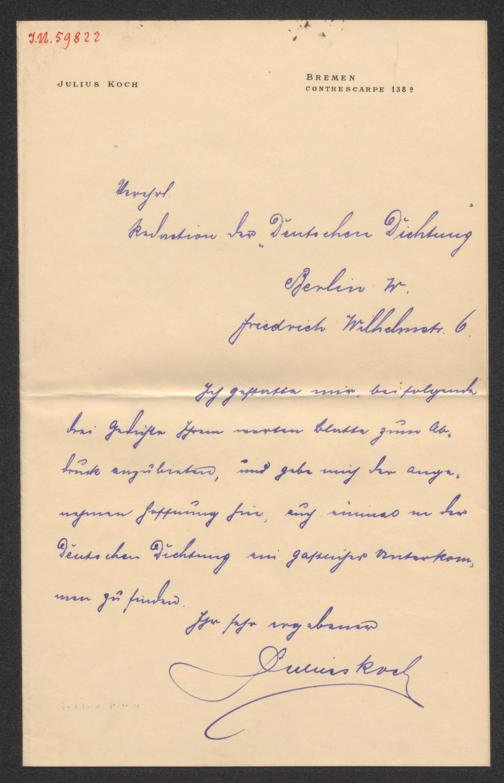 J.N. 59822
JULIUS KOCH
BREMEN
CONTRESCARPE 138 a
Verehrl.
Redaction der „Deutschen Dichtung"
Berlin W.
Friedrich Wilhelmstr. 6.
Ich gestatte mir, beifolgende
drei Gedichte Ihrem werten Blatte zum Ab-
druck anzubieten, und gebe mich der ange-
nehmen Hoffnung hin, auch einmal in der
Deutschen Dichtung ein gastliches Unterkom-
men zu finden.
Ihr sehr ergebener
Julius Koch